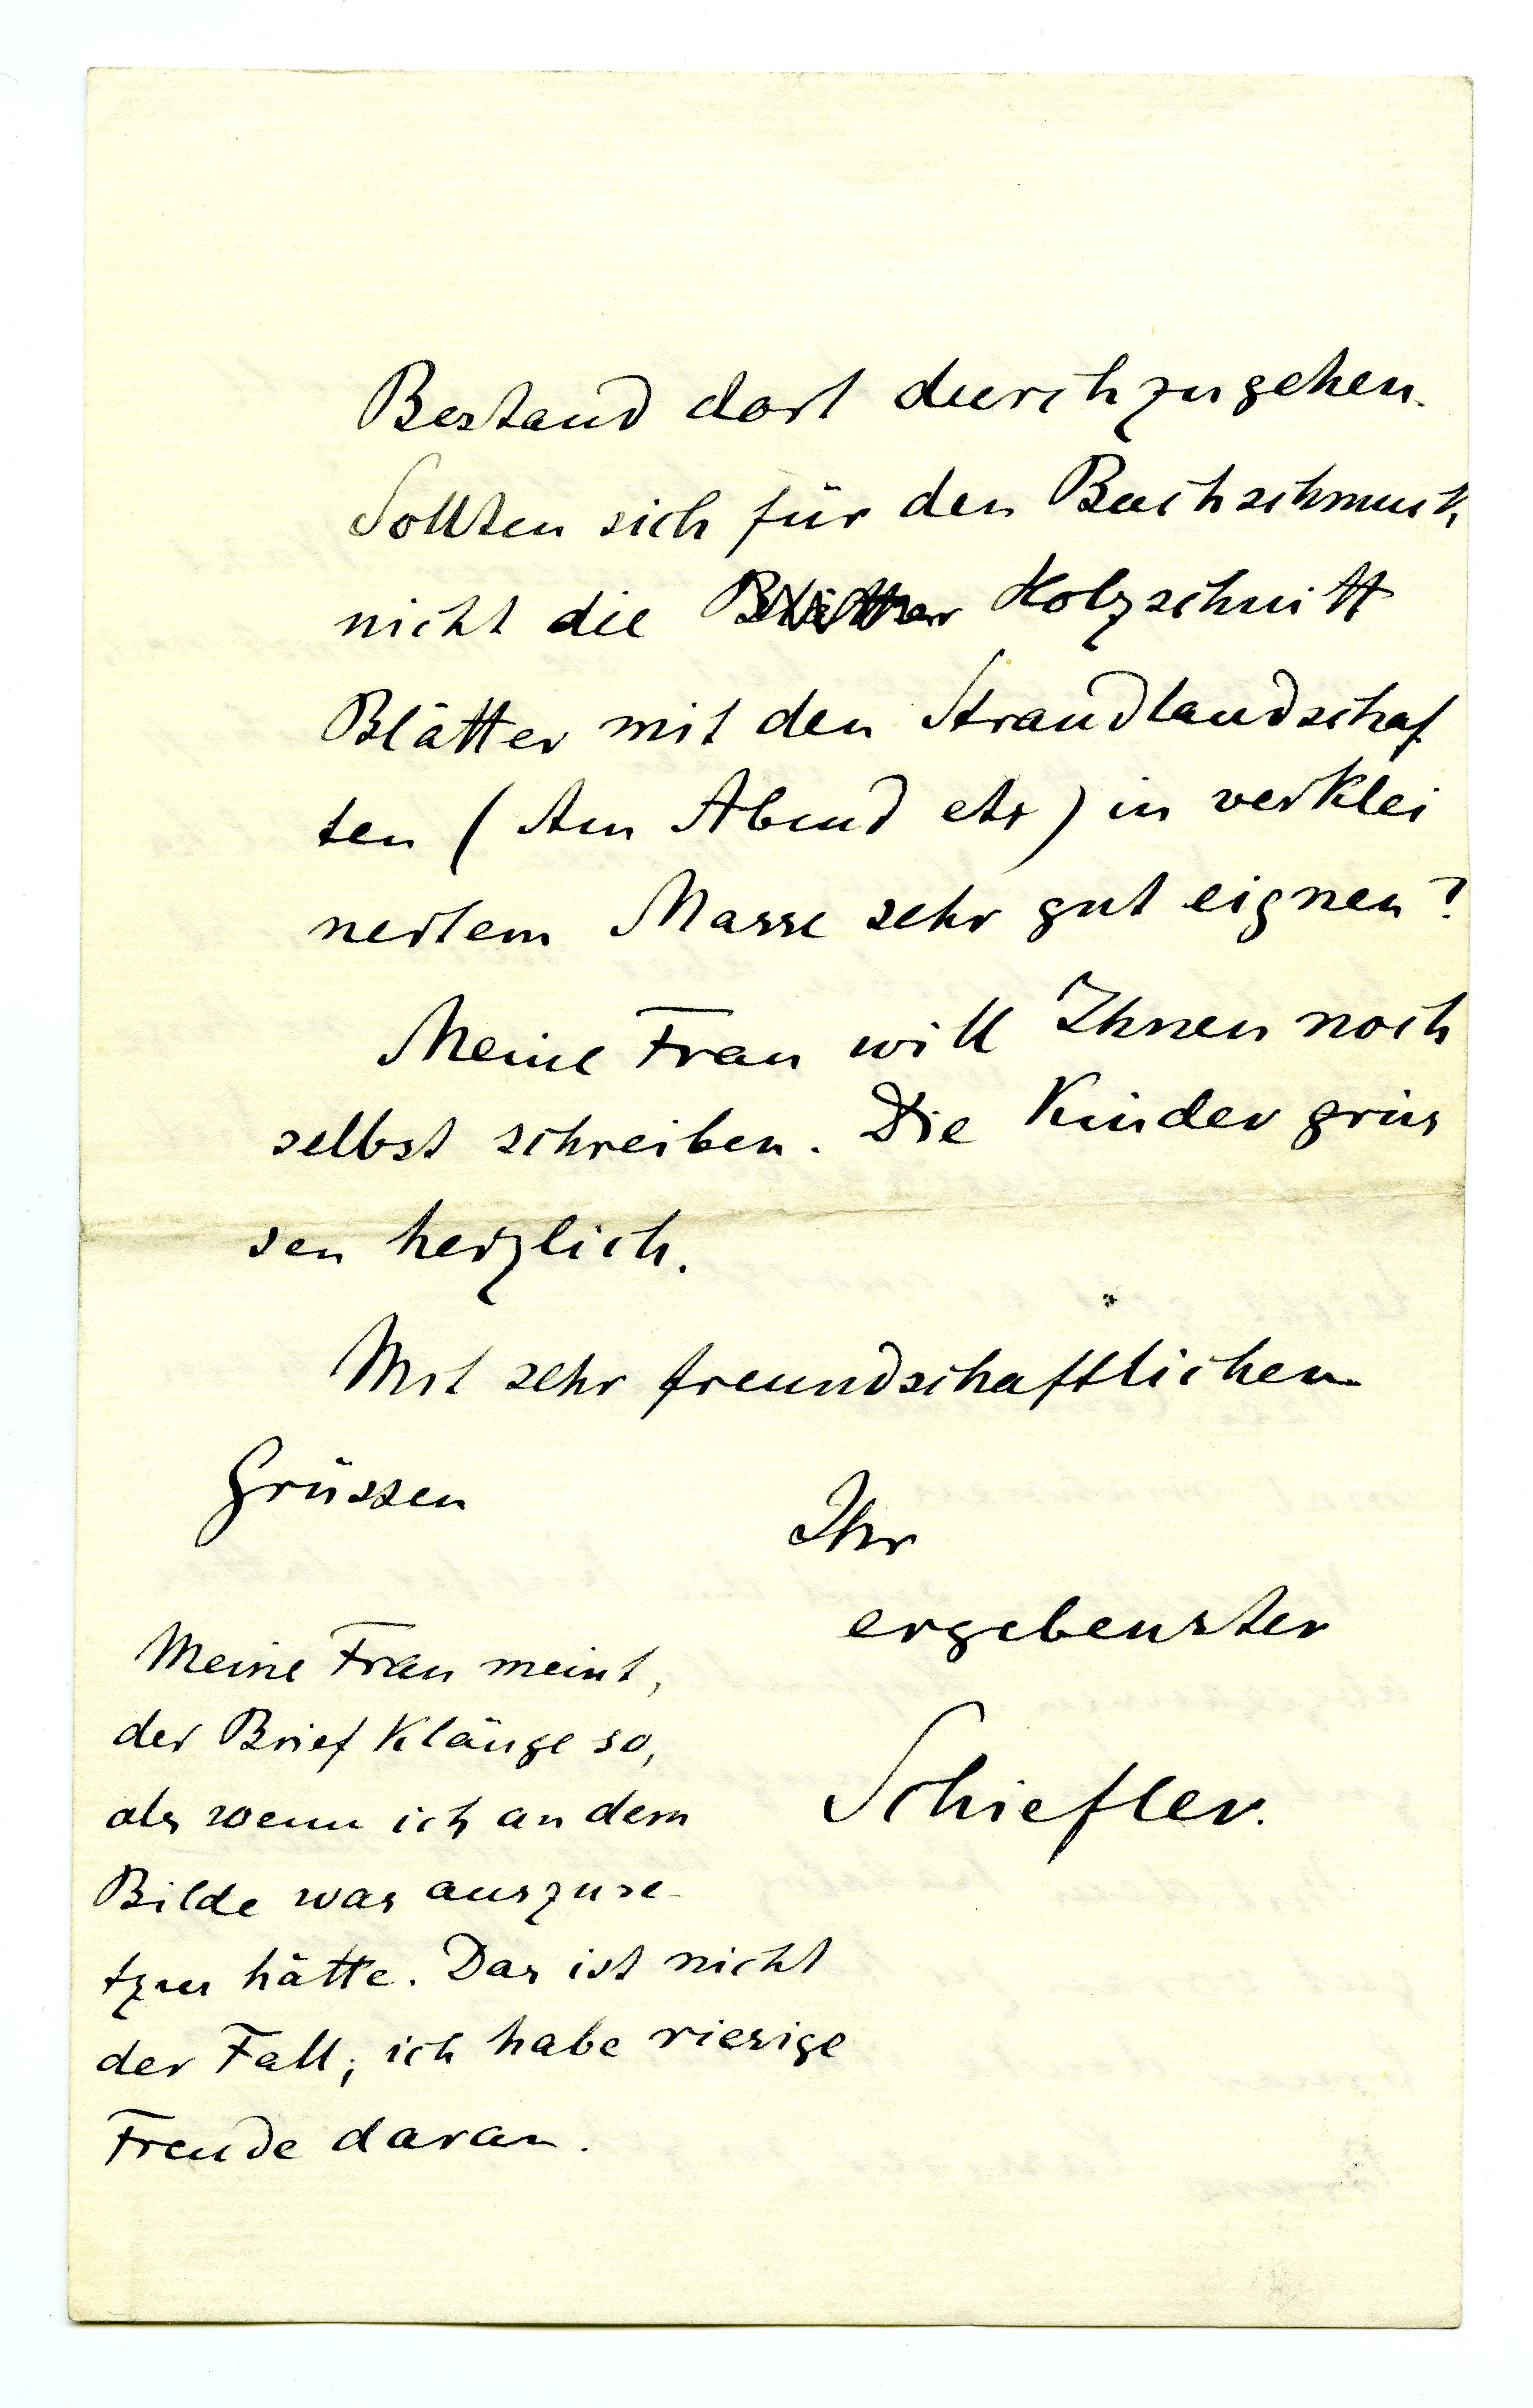 Bestand dort durchzugehen.
Sollten sich für den Buchschmuck
nicht die Blätter Holzschnitt
Blätter mit den Strandlandschaf
ten (Am Abend etc) in verklei
nertem Masse sehr gut eignen?
Meine Frau will Ihnen noch
selbst schreiben. Die Kinder grüs
sen herzlich.
Mit sehr freundschaftlichen
Grüssen
Ihr
ergebenster
Schiefler.
Meine Frau meint,
der Brief klänge so,
als wenn ich an dem
Bilde was auszuse-
tzen hätte. Das ist nicht
der Fall; ich habe riesige
Freude daran.